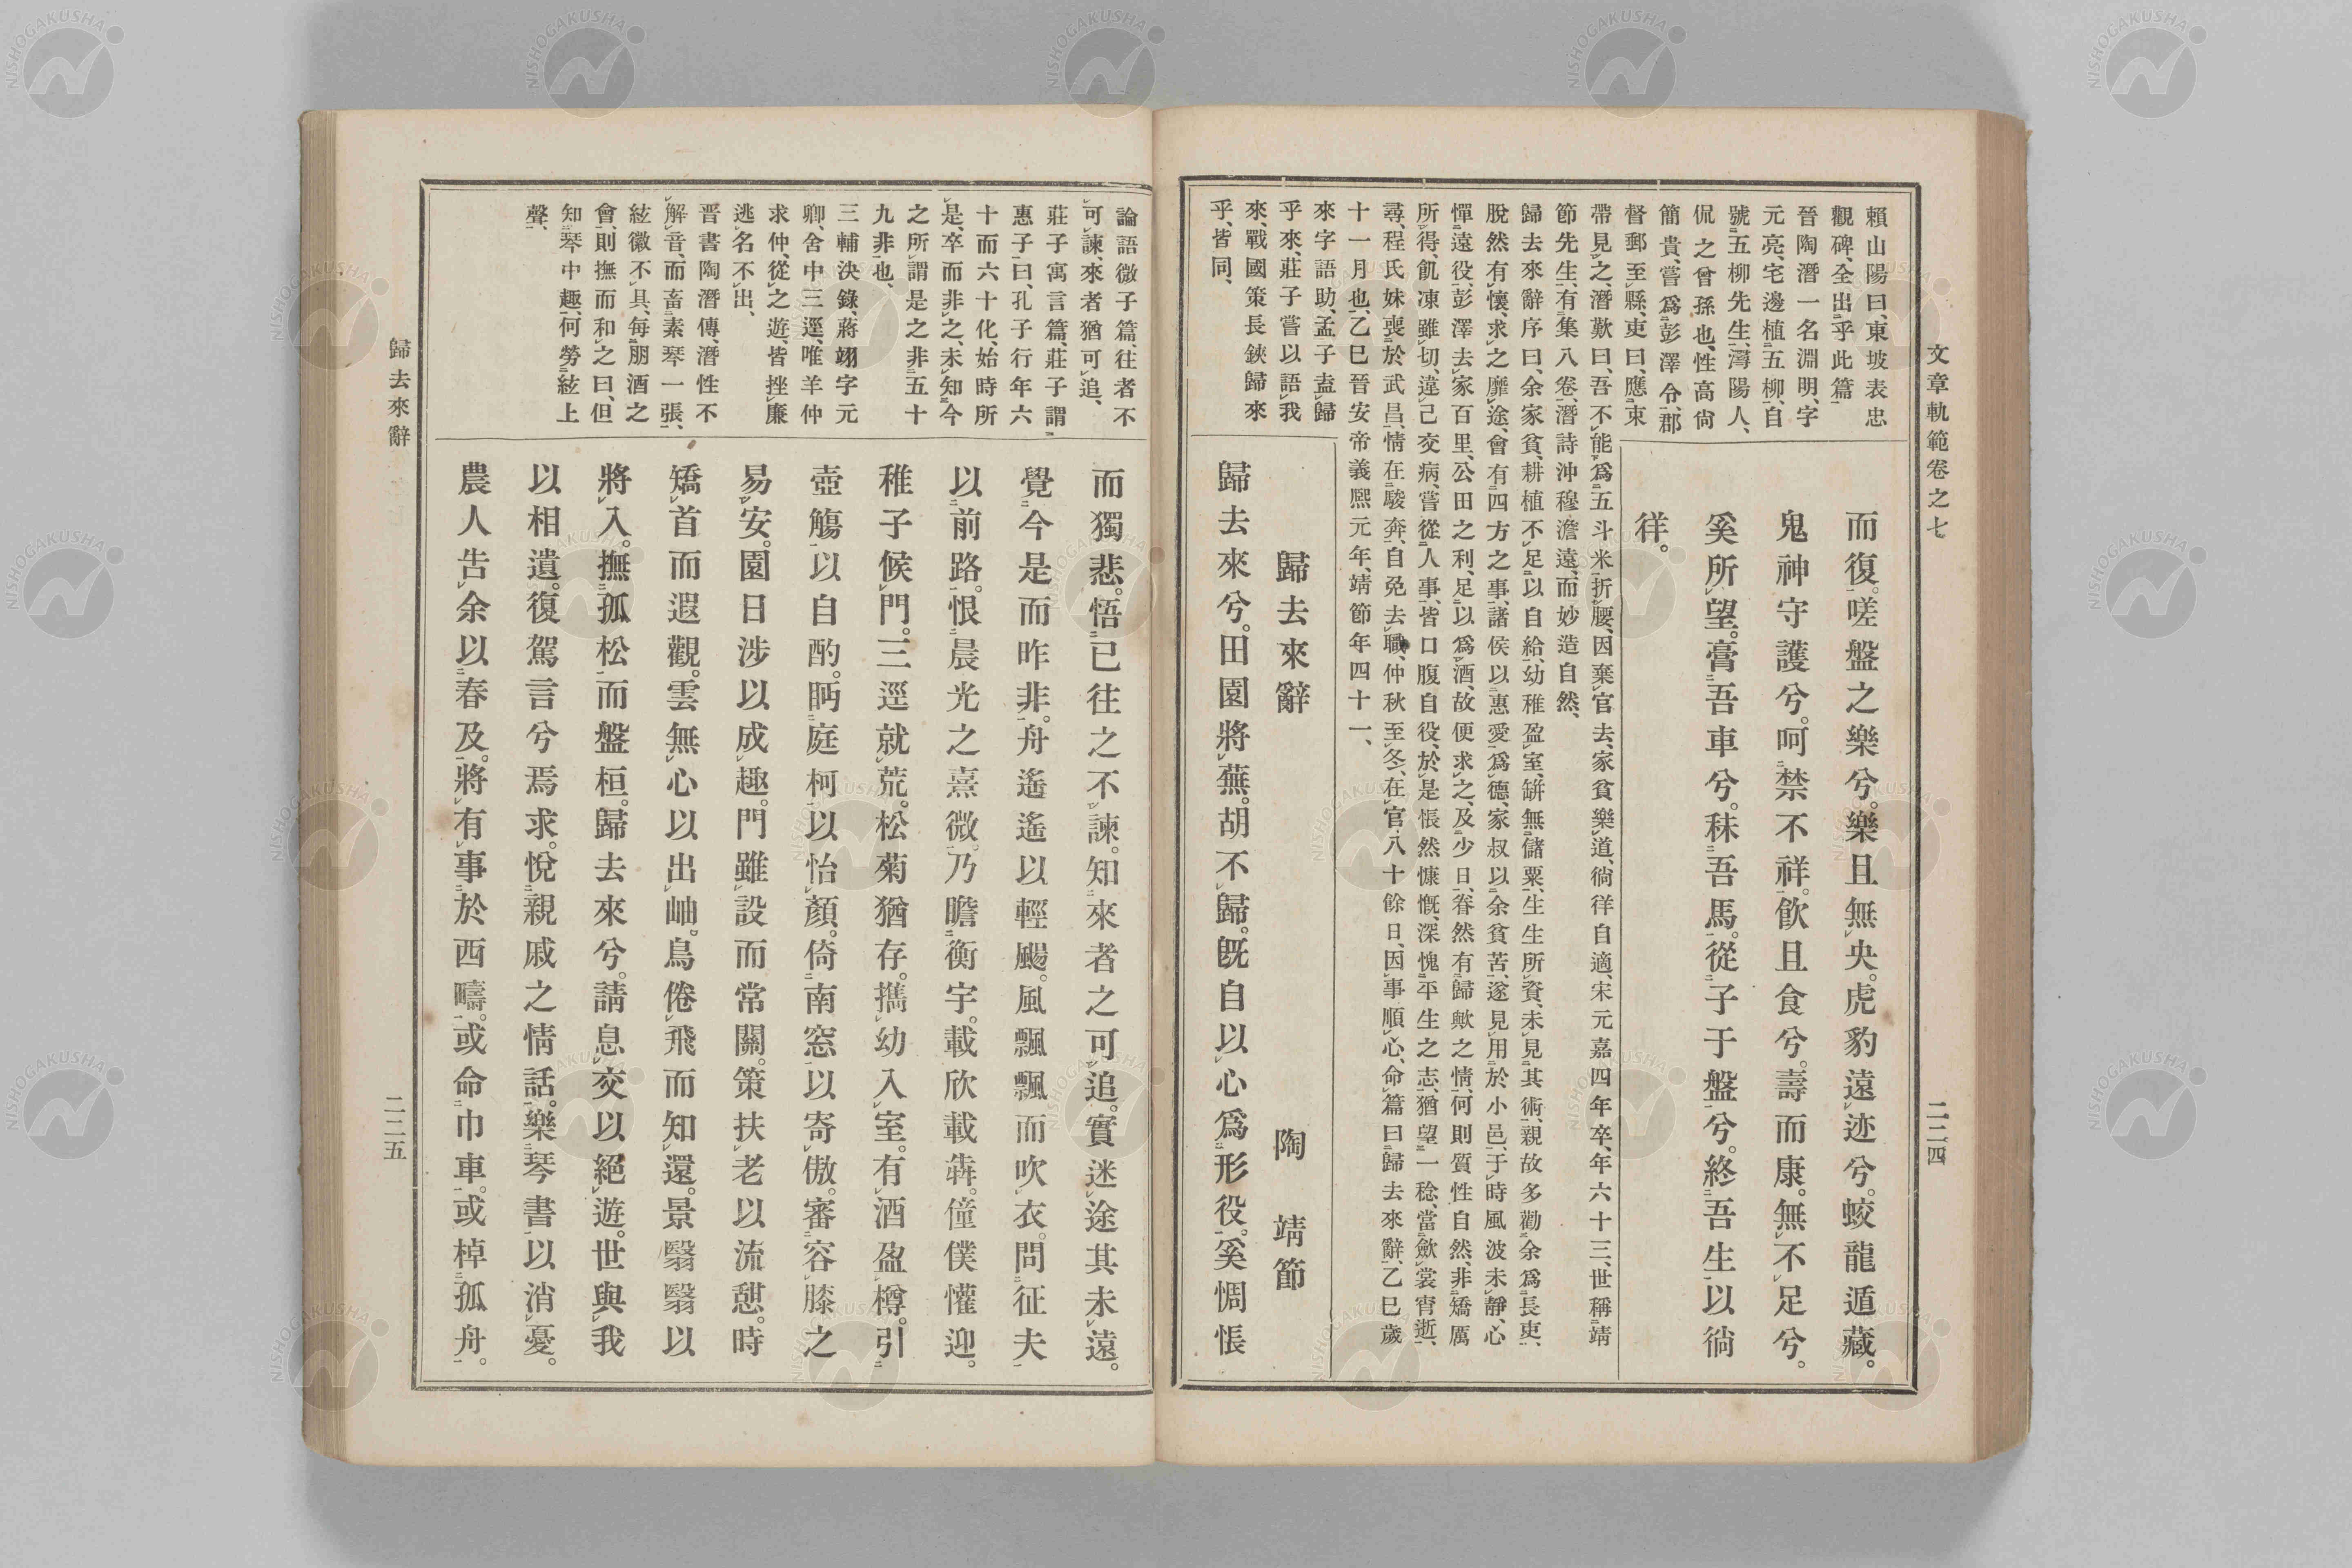 文章軌範卷之七
二二四
賴山陽曰、東坡表忠
觀碑、全出乎此篇
晉陶潛一名淵明、字
元亮、宅邊植五柳、自
號五柳先生、潯陽人、
侃之曾孫也、性高尙
簡貴、嘗爲彭澤令、郡
督郵至縣、吏曰、應束
帶見之、潛歎曰、吾不能爲五斗米折腰、因棄官去、家貧樂道、徜徉自適、宋元嘉四年卒、年六十三、世稱靖
節先生、有集八卷、潛詩沖穆澹遠、而妙造自然、
歸去來辭序曰、余家貧、耕植不足以自給、幼稚盈室、缾無儲粟、生生所資、未見其術、親故多勸余爲長吏、
脫然有懷、求之靡途、會有四方之事、諸侯以惠愛爲德、家叔以余貧苦、遂見用於小邑、于時風波未靜、心
憚遠役、彭澤去家百里、公田之利、足以爲酒、故便求之、及少日、眷然有歸歟之情、何則質性自然、非矯厲
所得、飢凍雖切、違己交病、嘗從人事、皆口腹自役、於是悵然慷慨、深愧平生之志、猶望一稔、當斂裳宵逝、
尋、程氏妹喪於武昌、情在駿奔、自免去職、仲秋至冬、在官八十餘日、因事順心、命篇曰歸去來辭、乙巳歲
十一月也、乙巳晉安帝義熙元年、靖節年四十一、
來字語助、孟子盍歸
乎來、莊子嘗以語我
來、戰國策長鋏歸來
乎、皆同、
而復。嗟盤之樂兮。樂且無央。虎豹遠迹兮。蛟龍遁藏。
鬼神守護兮。呵禁不祥。飮且食兮。壽而康。無不足兮。
奚所望。膏吾車兮。秣吾馬。從子于盤兮。終吾生以徜
徉。
歸去來辭 陶靖節
歸去來兮。田園將蕪。胡不歸。旣自以心爲形役。奚惆悵
論語微子篇、往者不
可諫、來者猶可追、
莊子寓言篇、莊子謂
惠子曰、孔子行年六
十而六十化、始時所
是、卒而非之、未知今
之所謂是之非五十
九非也、
三輔決錄、蔣翊字元
卿、舍中三逕、唯羊仲
求仲、從之遊、皆挫廉
逃名不出、
晉書陶潛傳、潛性不
解音、而畜素琴一張、
絃徽不具、每朋酒之
會、則撫而和之曰、但
知琴中趣、何勞絃上
聲、
而獨悲。悟已往之不諫。知來者之可追。實迷途其未遠。
覺今是而昨非。舟遙遙以輕颺。風飄飄而吹衣。問征夫
以前路。恨晨光之熹微。乃瞻衡宇。載欣載犇。僮僕懽迎。
稚子候門。三逕就荒。松菊猶存。攜幼入室。有酒盈樽。引
壺觴以自酌。眄庭柯以怡顏。倚南窓以寄傲。審容膝之
易安。園日涉以成趣。門雖設而常關。策扶老以流憇。時
矯首而遐觀。雲無心以出岫。鳥倦飛而知還。景翳翳以
將入。撫孤松而盤桓。歸去來兮。請息交以絕遊。世與我
以相遺。復駕言兮焉求。悅親戚之情話。樂琴書以消憂。
農人告余以春及。將有事於西疇。或命巾車。或棹孤舟。
歸去來辭
二二五
NISHOGAKUSHA